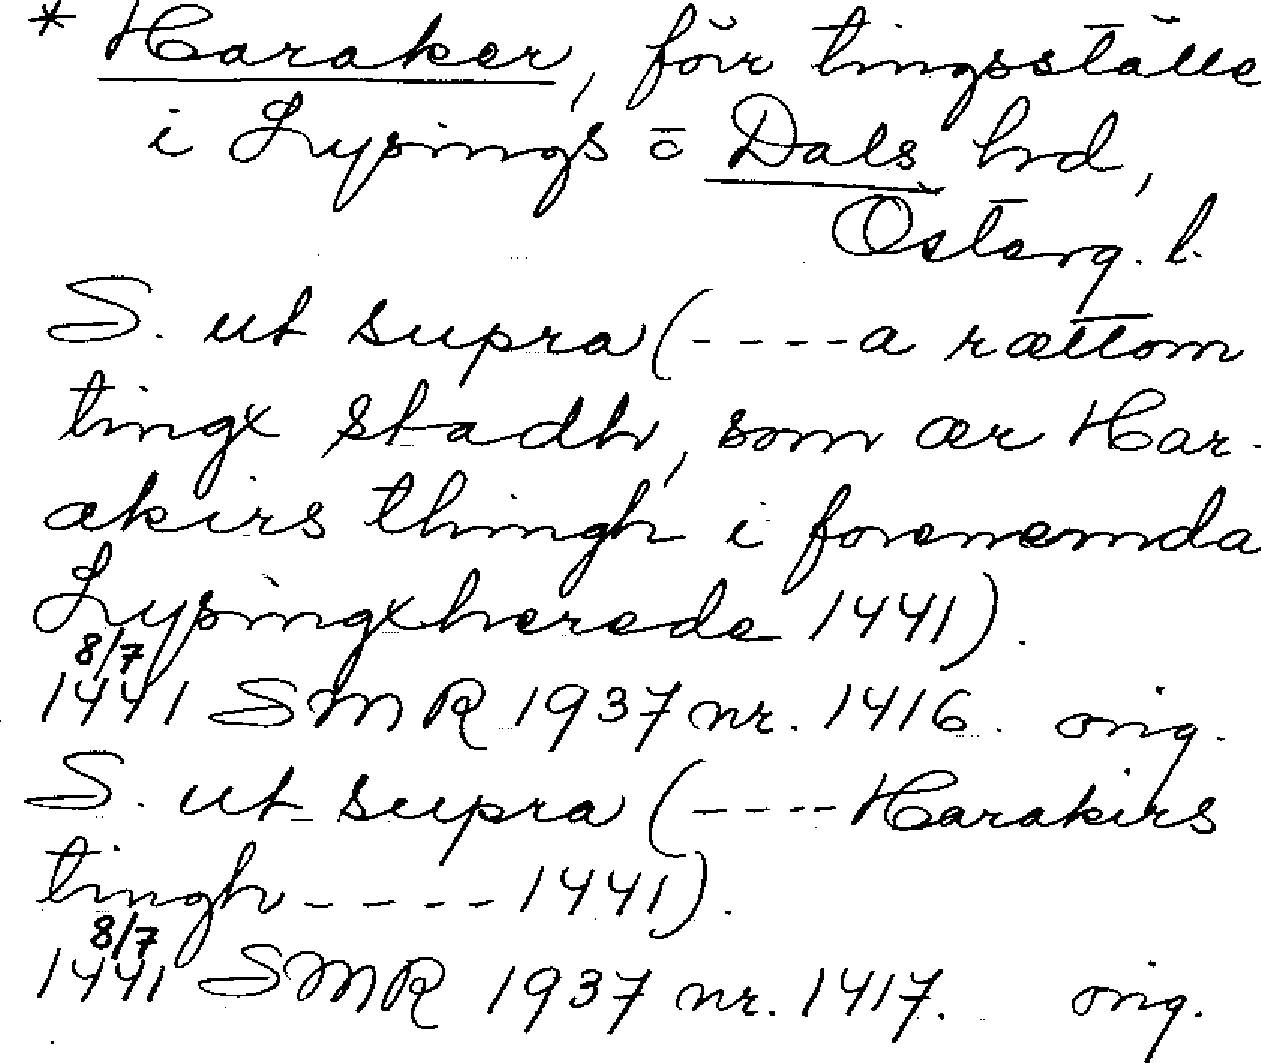 * Haraker, förr tingsställe
i Lysings o Dals hrd,
Österg. l.
S. ut supra (----a rættom
tingx stadh, som ær Har-
akirs thingh i forenemda
Lysingxherede 1441).
8/7
1441 SMR 1937 nr. 1416. orig.
S. ut supra (----Harakirs
tingh----1441).
8/7
1441 SMR 1937 nr. 1417. orig.